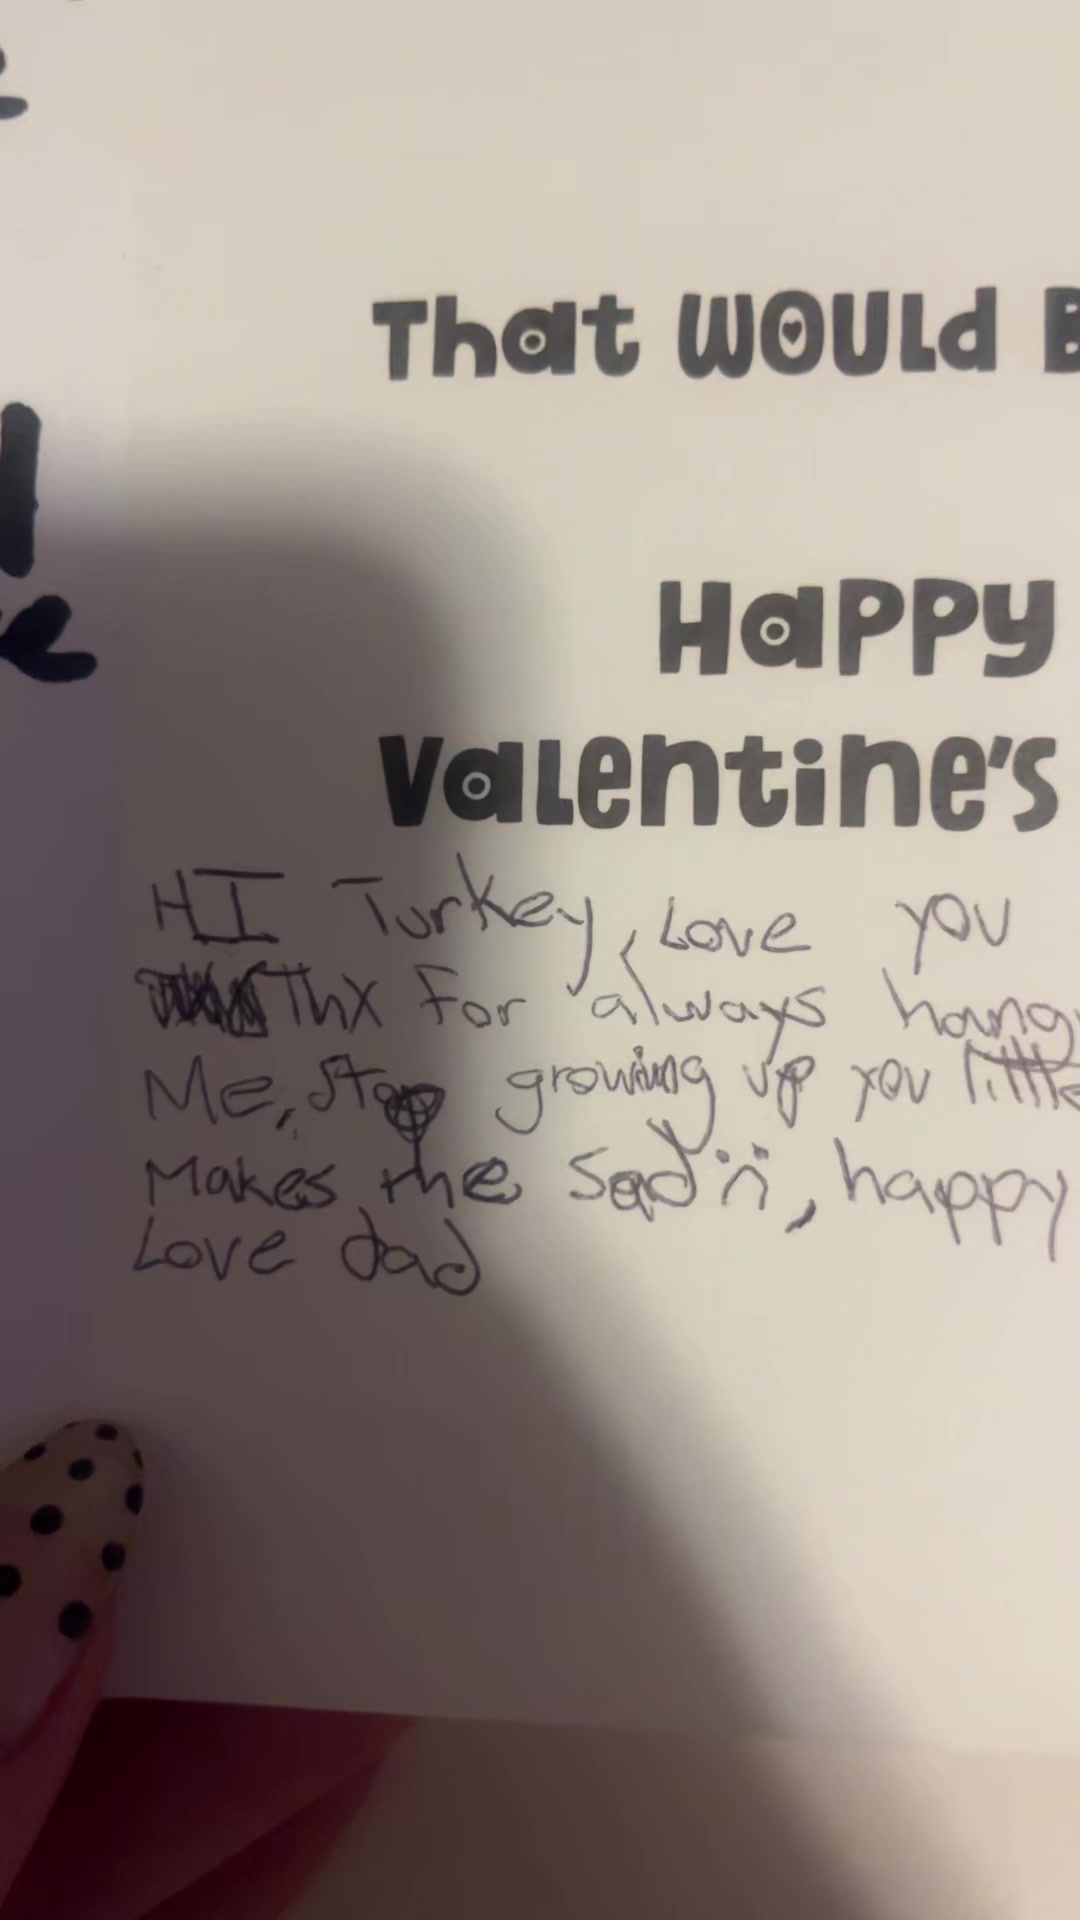 That WOULD B
Happy
Valentine's
HI Turkey, Love you
Thx For always hang
Me, stop growing up you little
Makes me sad :( , happy
Love dad